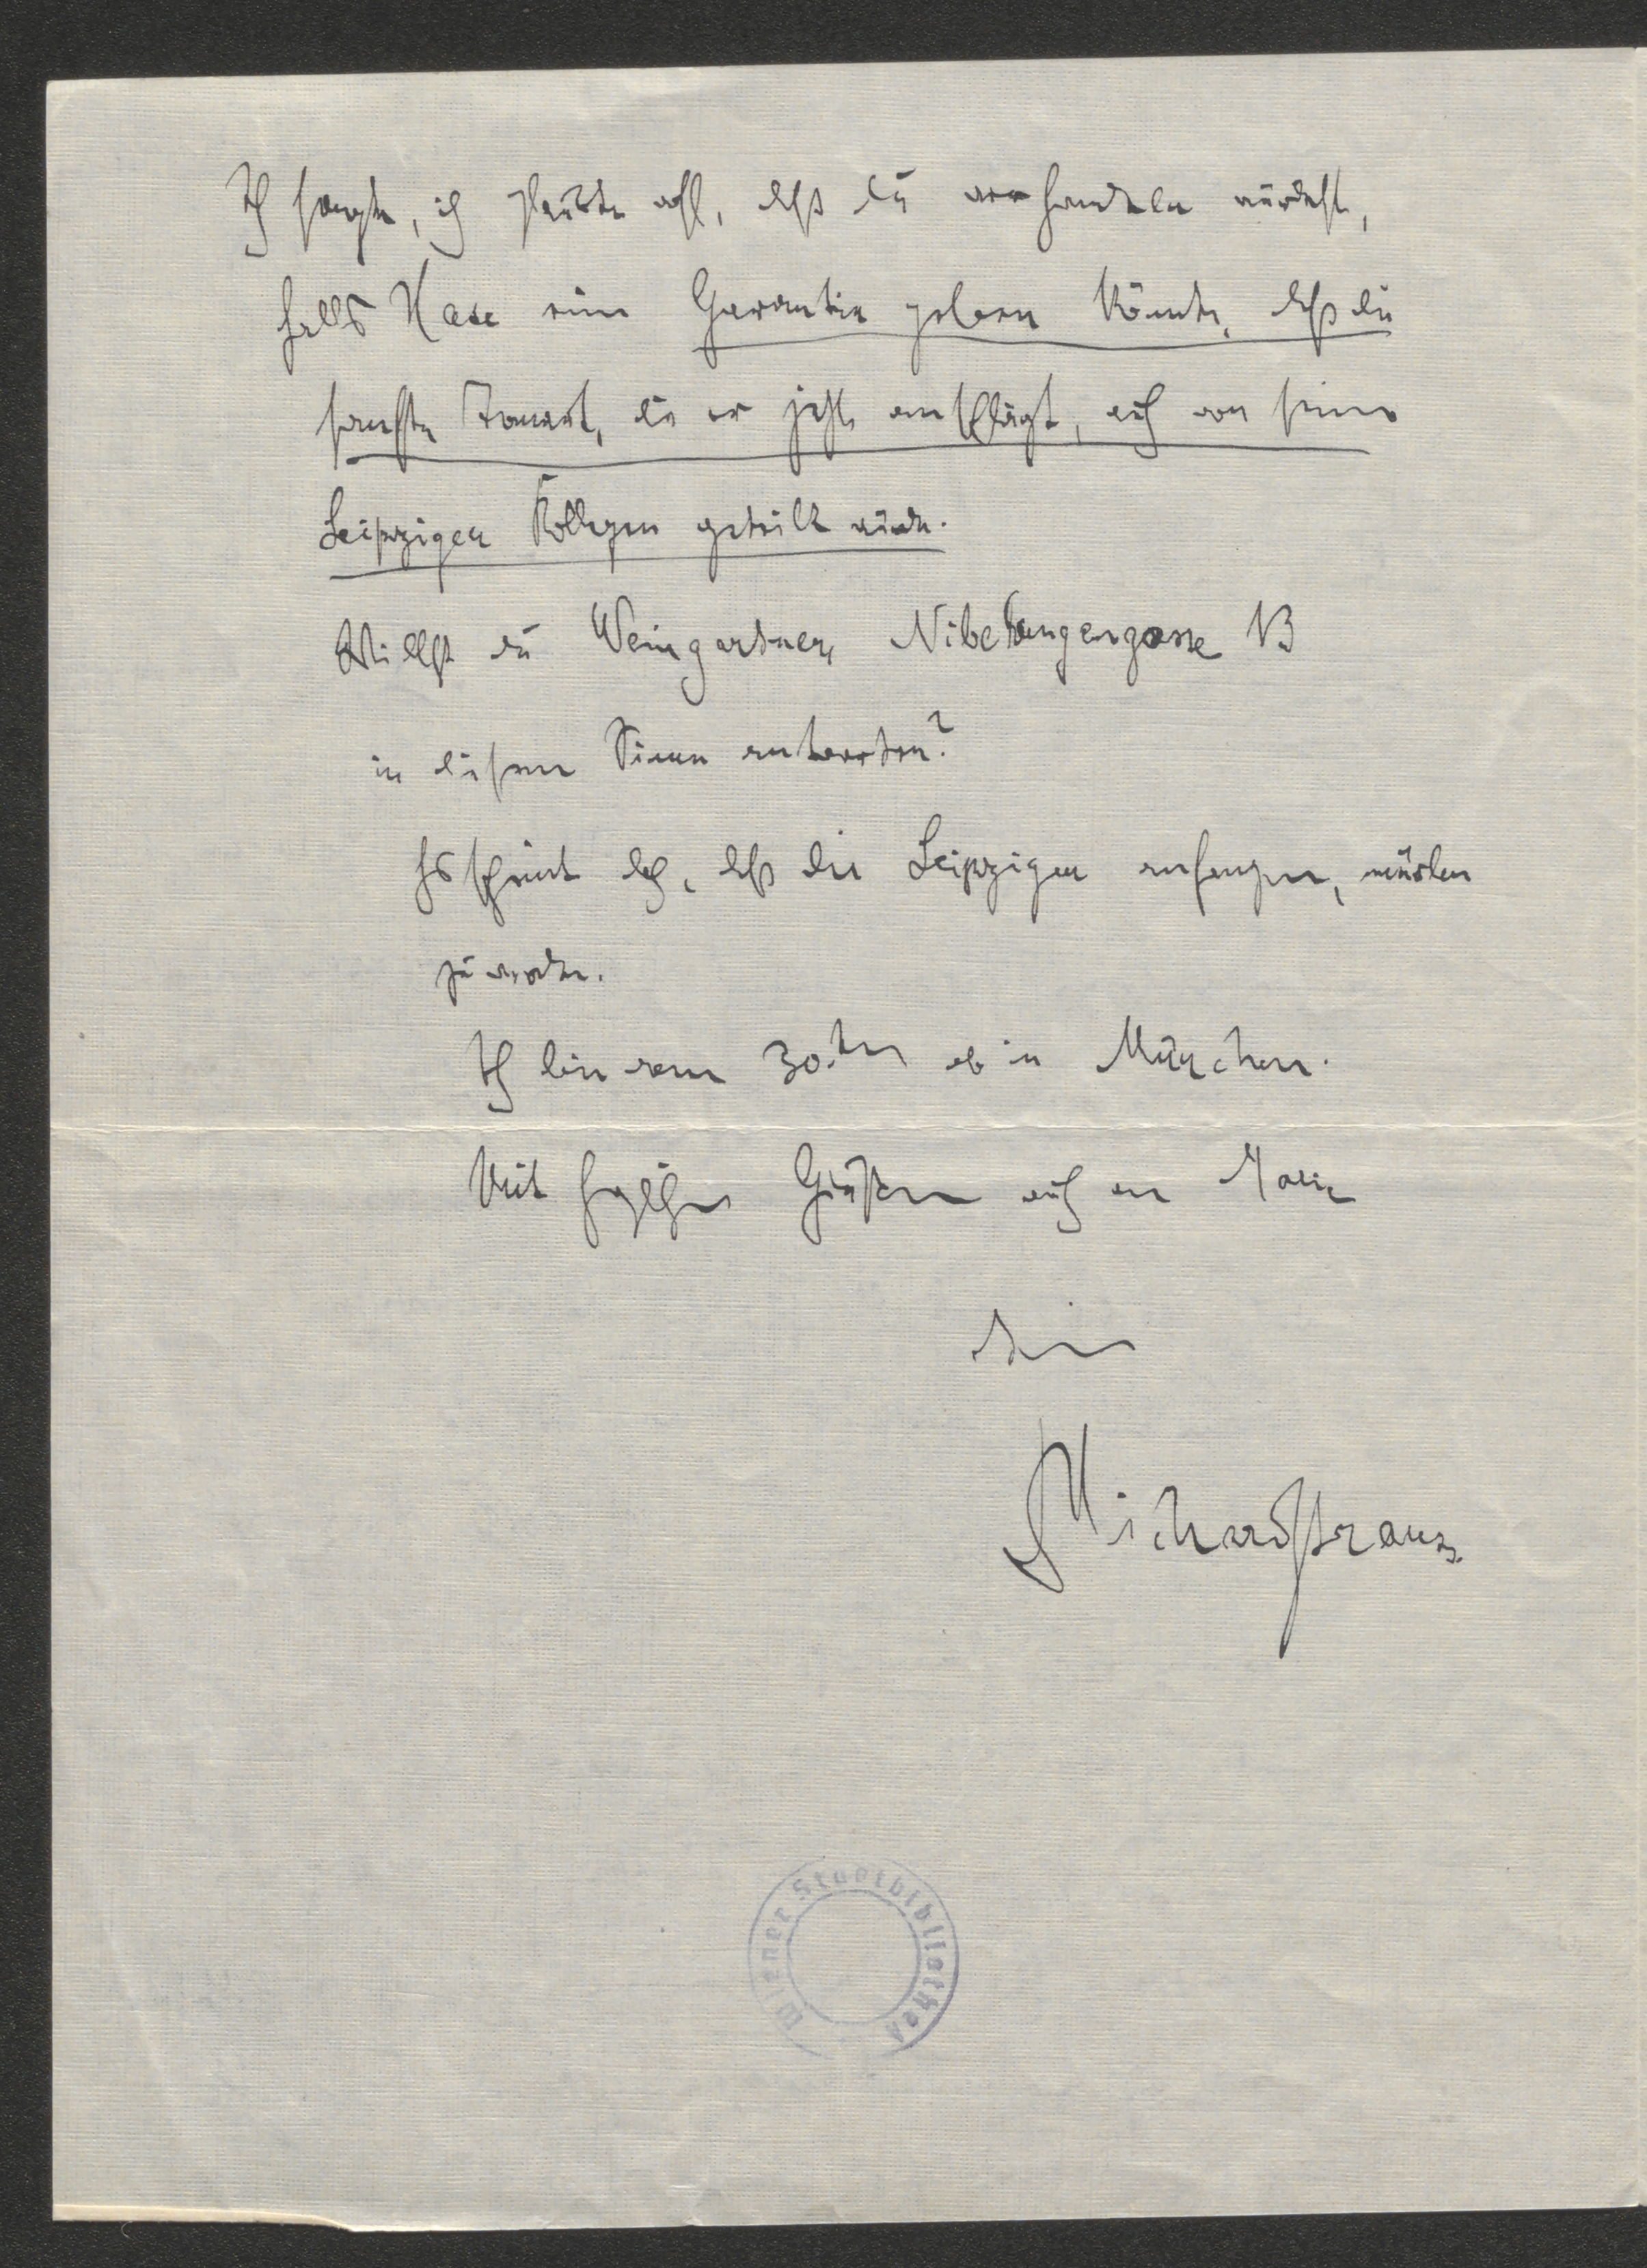 Ich sagte, ich glaubte wohl, daß du verhandeln würdest,
falls Hase eine Garantie geben könnte, daß die
sanfte Tonart, die er jetzt anschlägt, auch von seinen
Leipziger Kollegen geteilt würde.
Willst du Weingartner, Nibelungengasse 13
in diesem Sinne antworten?
Es scheint doch, daß die Leipziger anfangen, mürbe
zu werden.
Ich bin vom 30.ten ab in München.
Mit herzlichen Grüßen auch an Marie
Dein
Richard Strauss.
Wiener Stadtbibliothek